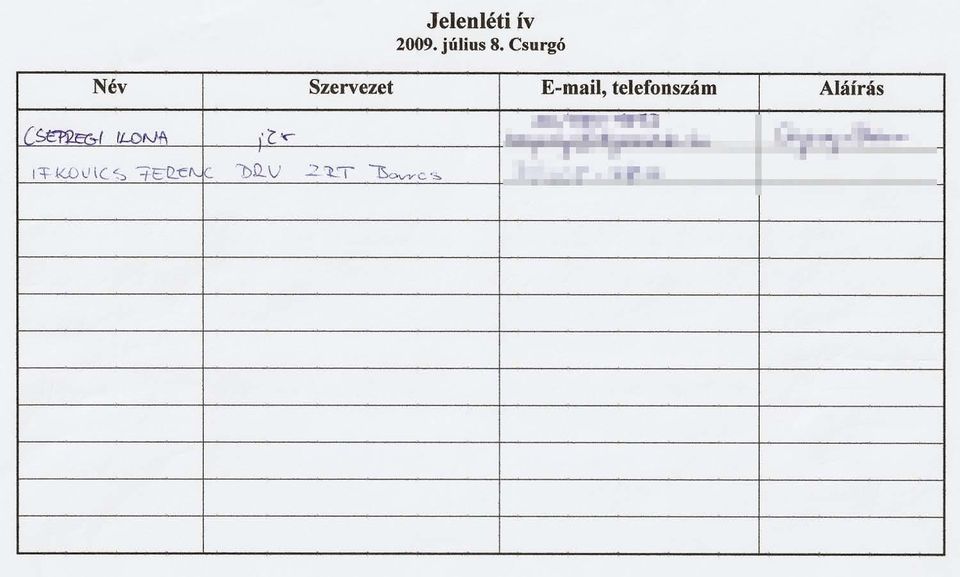 Jelenléti ív
2009. július 8. Csurgó
Név Szervezet E-mail, telefonszám Aláírás
CSEPREGI ILONA
IFKOVICS FERENC DRV ZRT Barcs